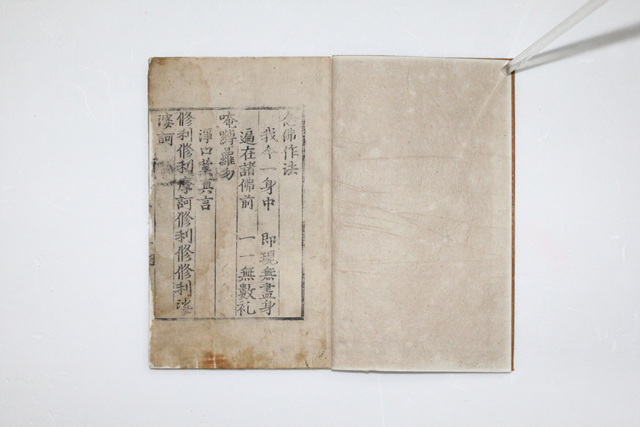 念佛作法
我今一身中 即現無盡身
遍在諸佛前 一一無數礼
唵 囉勿
淨口業真言
修利修利摩訶修利修修利娑
婆訶